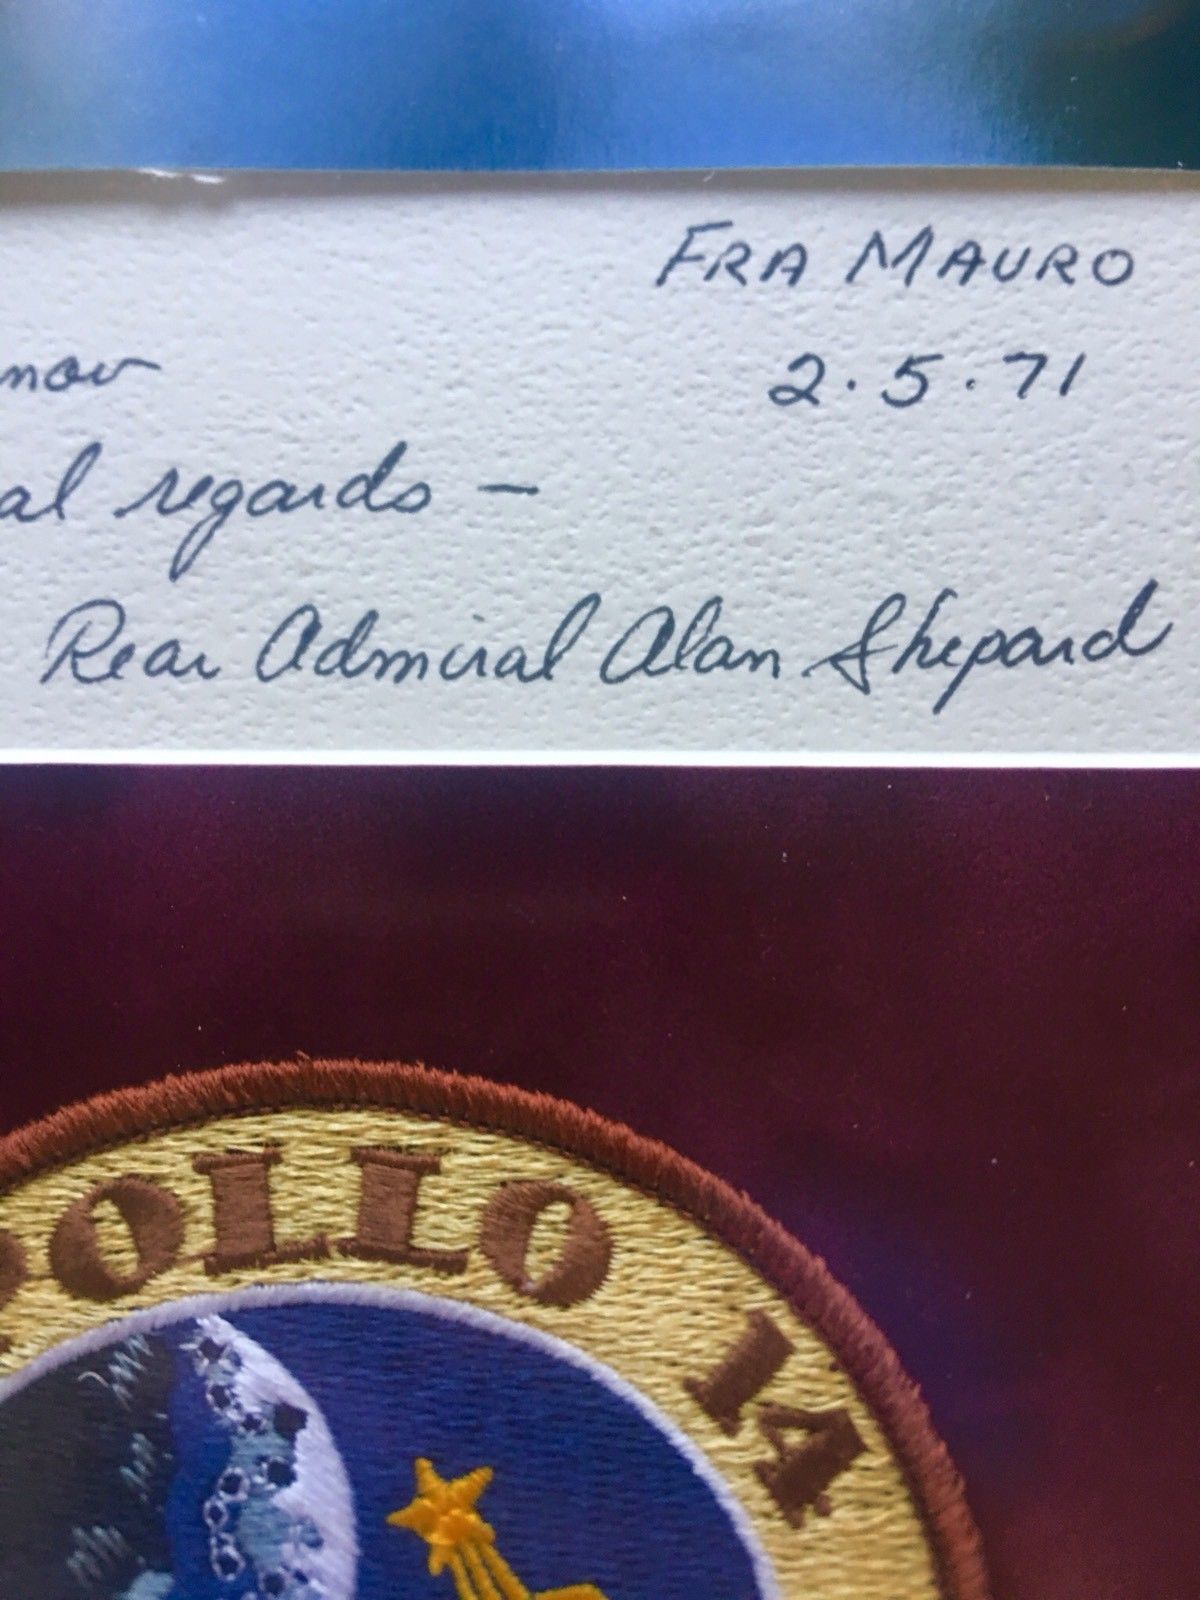 FRA MAURO
2.5.71
regards —
Rear Admiral Alan Shepard
OLLO 14